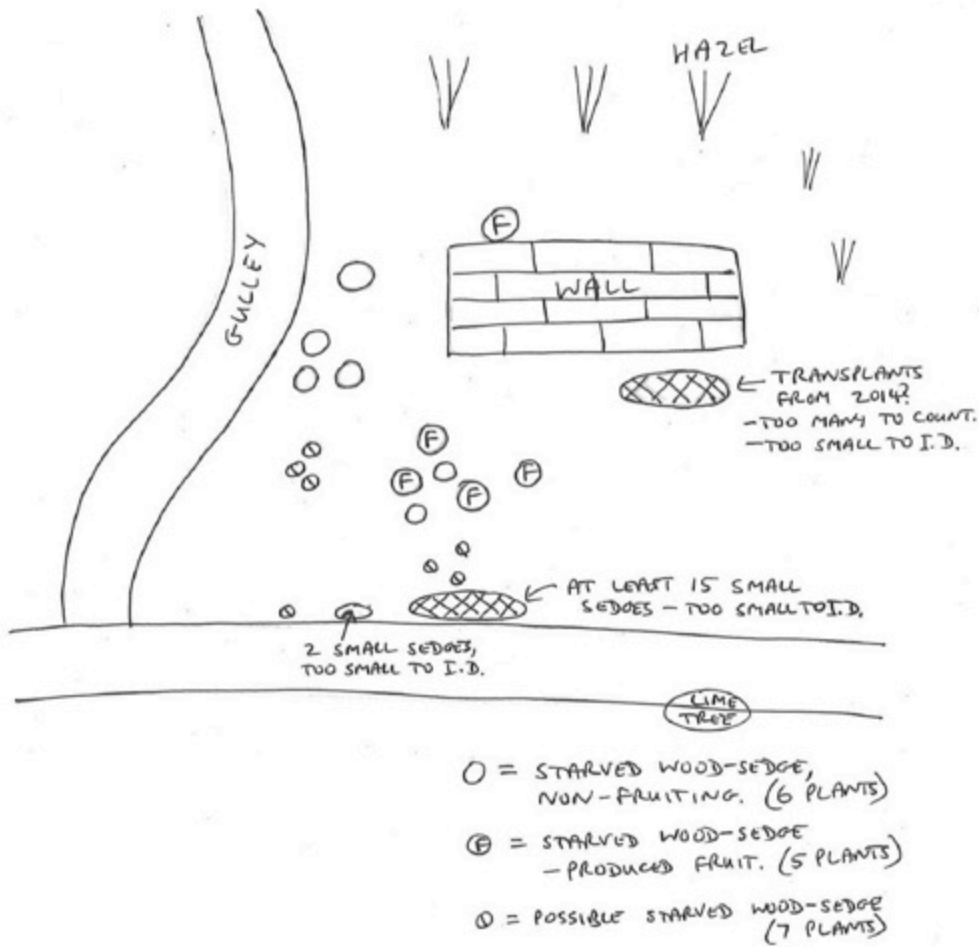 HAZEL
F
GULLEY
WALL
TRANSPLANTS
FROM 2014?
-TOO MANY TO COUNT.
-TOO SMALL TO I.D.
F
F
F
F
AT LEAST 15 SMALL
SEDGES - TOO SMALL TO I.D.
2 SMALL SEDGES,
TOO SMALL TO I.D.
LIME
TREE
= STARVED WOOD-SEDGE,
NON-FRUITING. (6 PLANTS)
F = STARVED WOOD-SEDGE
- PRODUCED FRUIT. (5 PLANTS)
= POSSIBLE STARVED WOOD-SEDGE
(7 PLANTS)